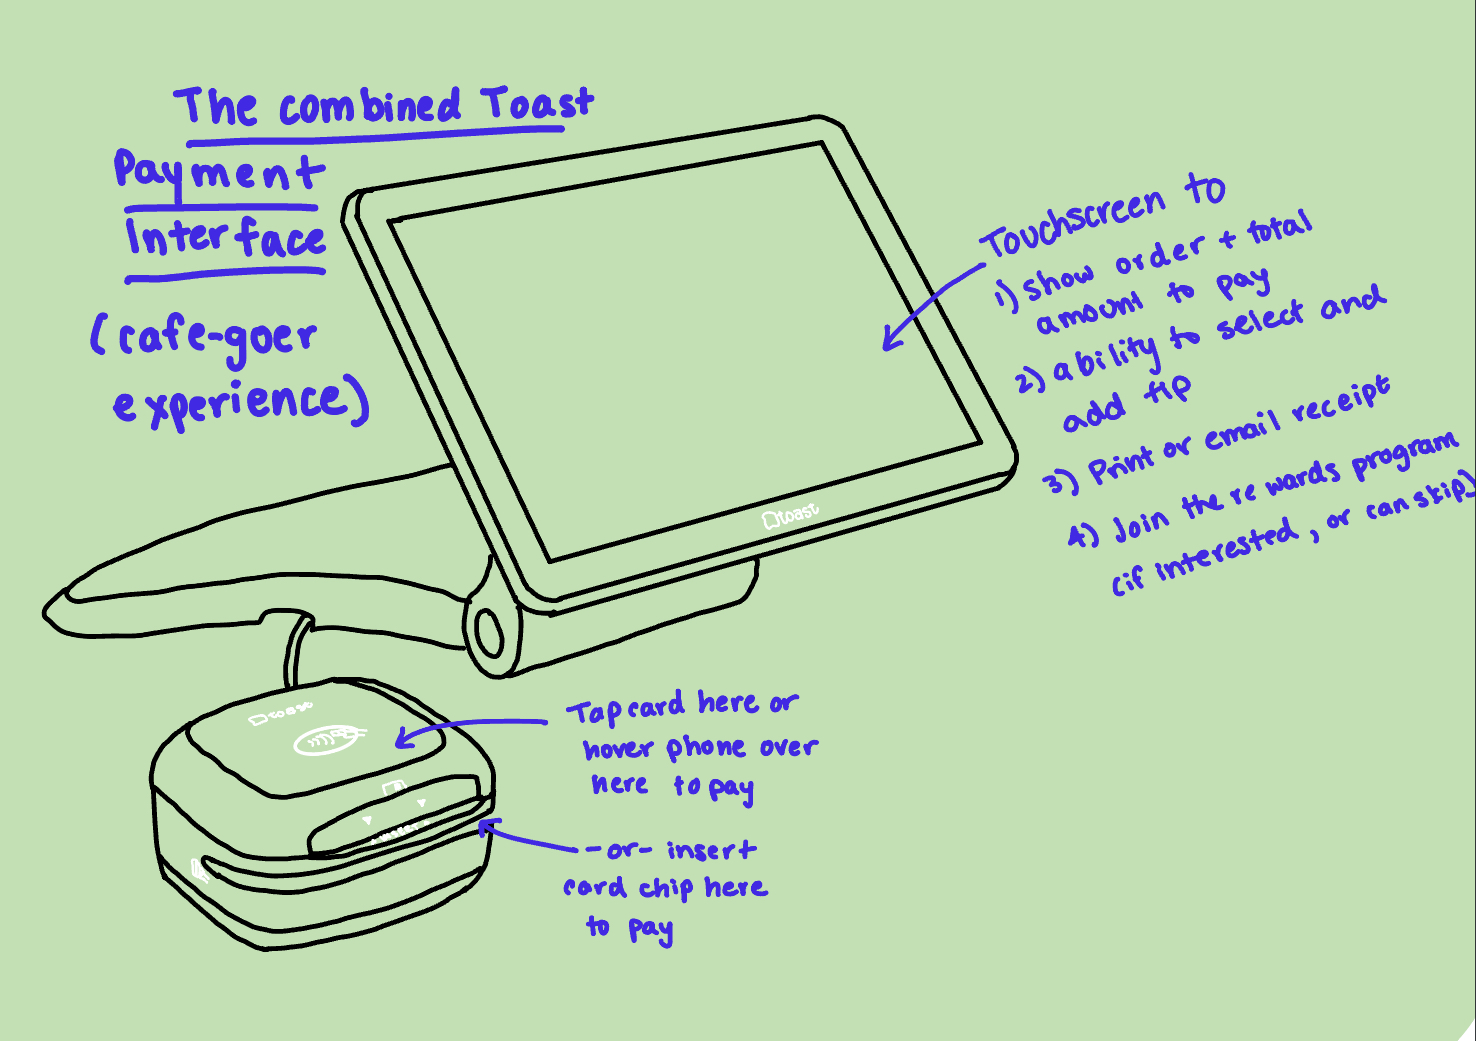 The combined Toast
Payment
Interface
(cafe-goer
experience)
Touchscreen to
1) show order + total
amount to pay
2) ability to select and
add tip
3) Print or email receipt
4) Join the rewards program
(if interested, or can skip)
toast
toast
Tap card here or
hover phone over
here to pay
-or- insert
card chip here
to pay